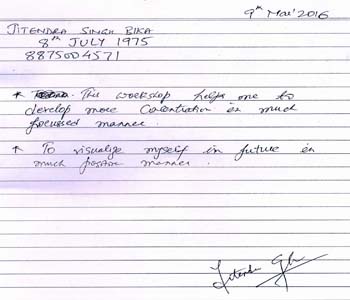 9th Mar' 2016
JITENDRA SINGH BIKA
8th JULY 1975
8875004571
* This workshop helps one to
develop more Concentration in much
focussed manner.
* To visualize myself in future in
much positive manner.
Jitendra